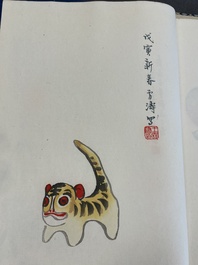 戊寅新春雪濤写